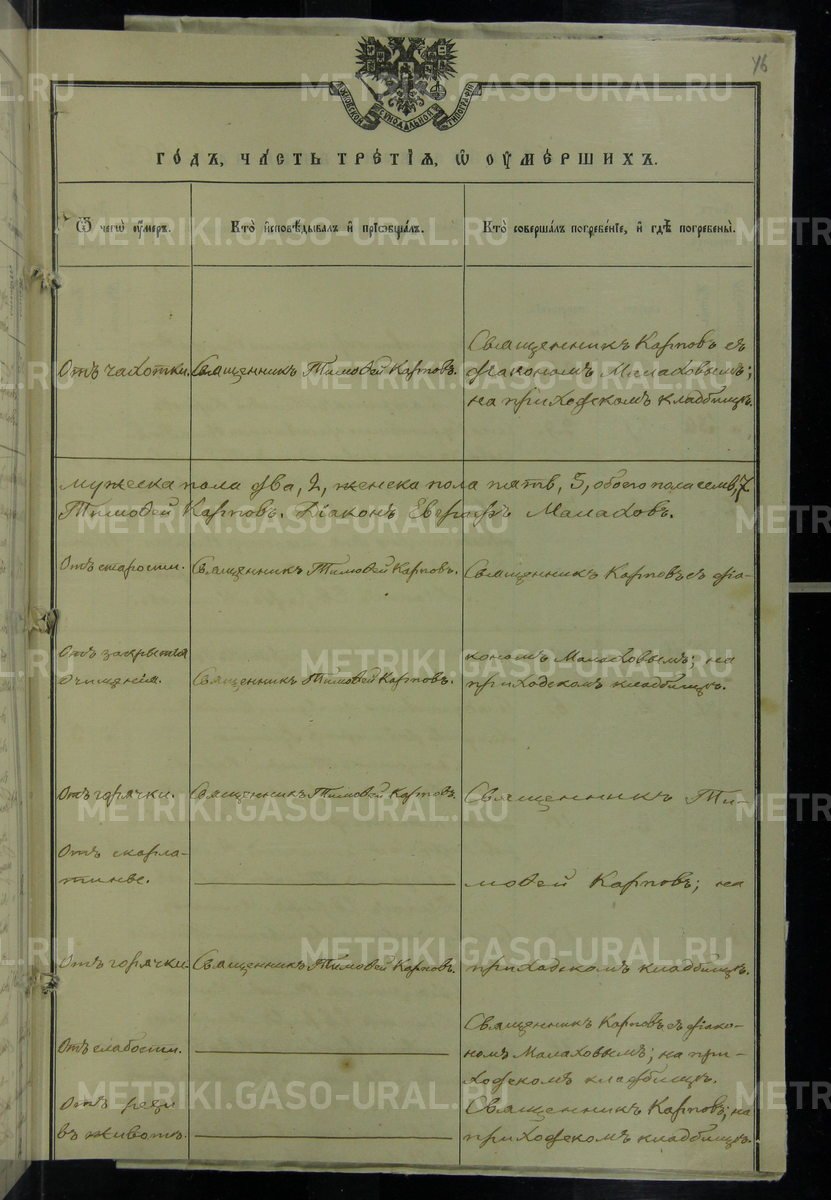 46
МОСКОВСКОЙ СѴНОДАЛЬНОЙ ТИПОГРАФІИ
ГО́ДЪ, ЧА́СТЬ ТРЕ́ТІѦ, Ѡ҆ ОУ҆МЕ́РШИХЪ.
Ѿ чегѡ̀ оу҆́меръ.
Кто̀ и҆сповѣ́дывалъ и҆ прїѡбща́лъ.
Кто̀ соверша́лъ погребе́нїе, и҆ гдѣ̀ погребены̀.
Отъ чахотки.
Священникъ Тимоѳей Карповъ.
Священникъ Карповъ съ
діакономъ Малаховымъ;
на приходскомъ кладбищѣ.
мужеска пола два, 2, женска пола пять, 5, обоего пола семь, 7
Тимоѳей Карповъ. Діаконъ Евграфъ Малаховъ.
Отъ старости.
Священникъ Тимоѳей Карповъ.
Священникъ Карповъ съ діа-
Отъ закрытія
очищенія.
Священникъ Тимоѳей Карповъ.
кономъ Малаховымъ; на
приходскомъ кладбищѣ.
Отъ горячки.
Священникъ Тимоѳей Карповъ.
Священникъ Ти-
Отъ скарла-
тины.
моѳей Карповъ; на
Отъ горячки.
Священникъ Тимоѳей Карповъ.
приходскомъ кладбищѣ.
Отъ слабости.
Священникъ Карповъ съ діако-
номъ Малаховымъ; на при-
ходскомъ кладбищѣ.
Отъ рези
въ животѣ.
Священникъ Карповъ; на
приходскомъ кладбищѣ.
METRIKI.GASO-URAL.RU